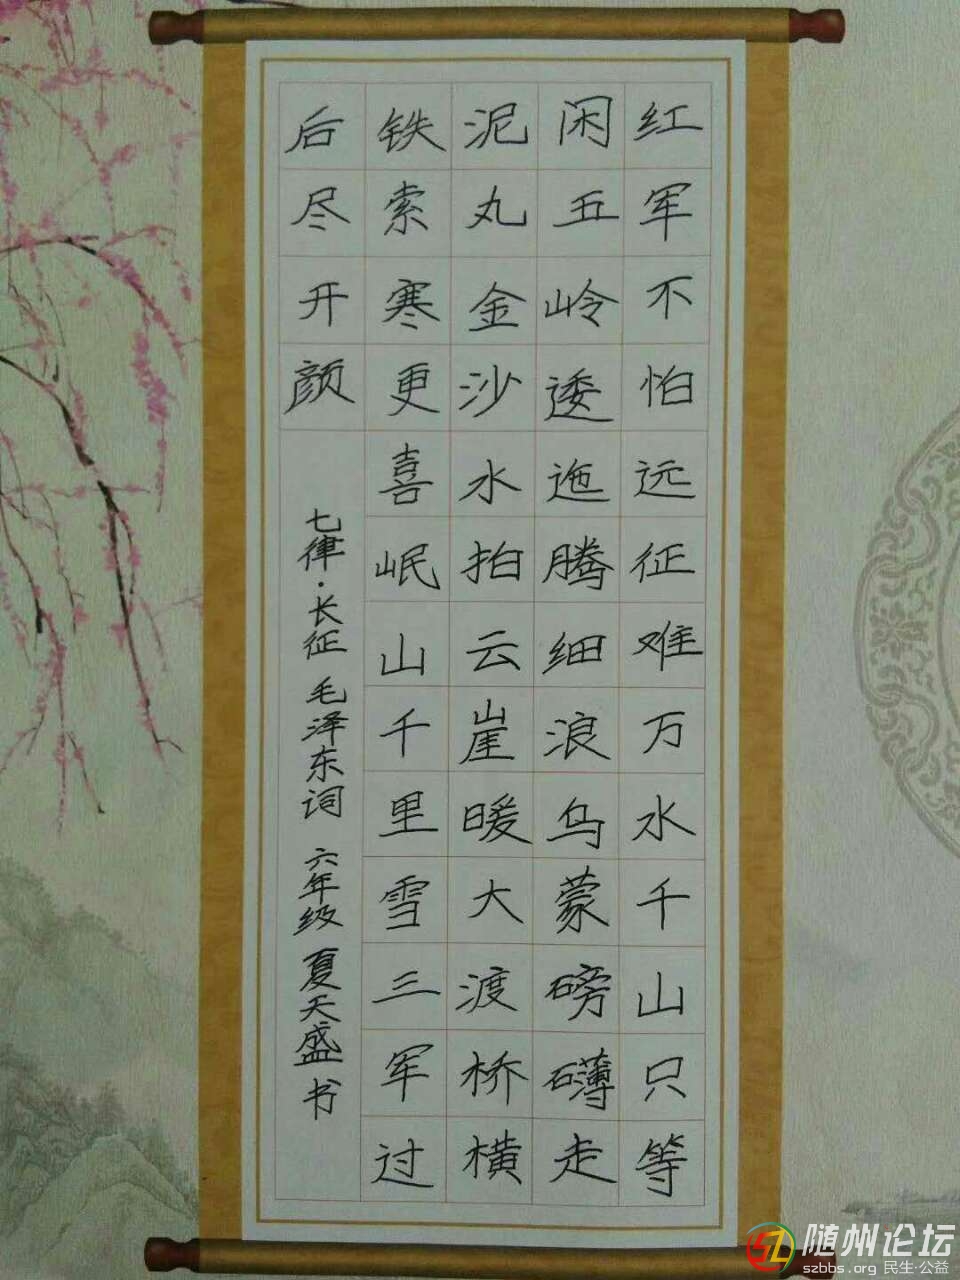 红军不怕远征难万水千山只等
闲五岭逶迤腾细浪乌蒙磅礴走
泥丸金沙水拍云崖暖大渡桥横
铁索寒更喜岷山千里雪三军过
后尽开颜
七律·长征 毛泽东词 六年级 夏天盛书
随州论坛
szbbs.org 民生·公益